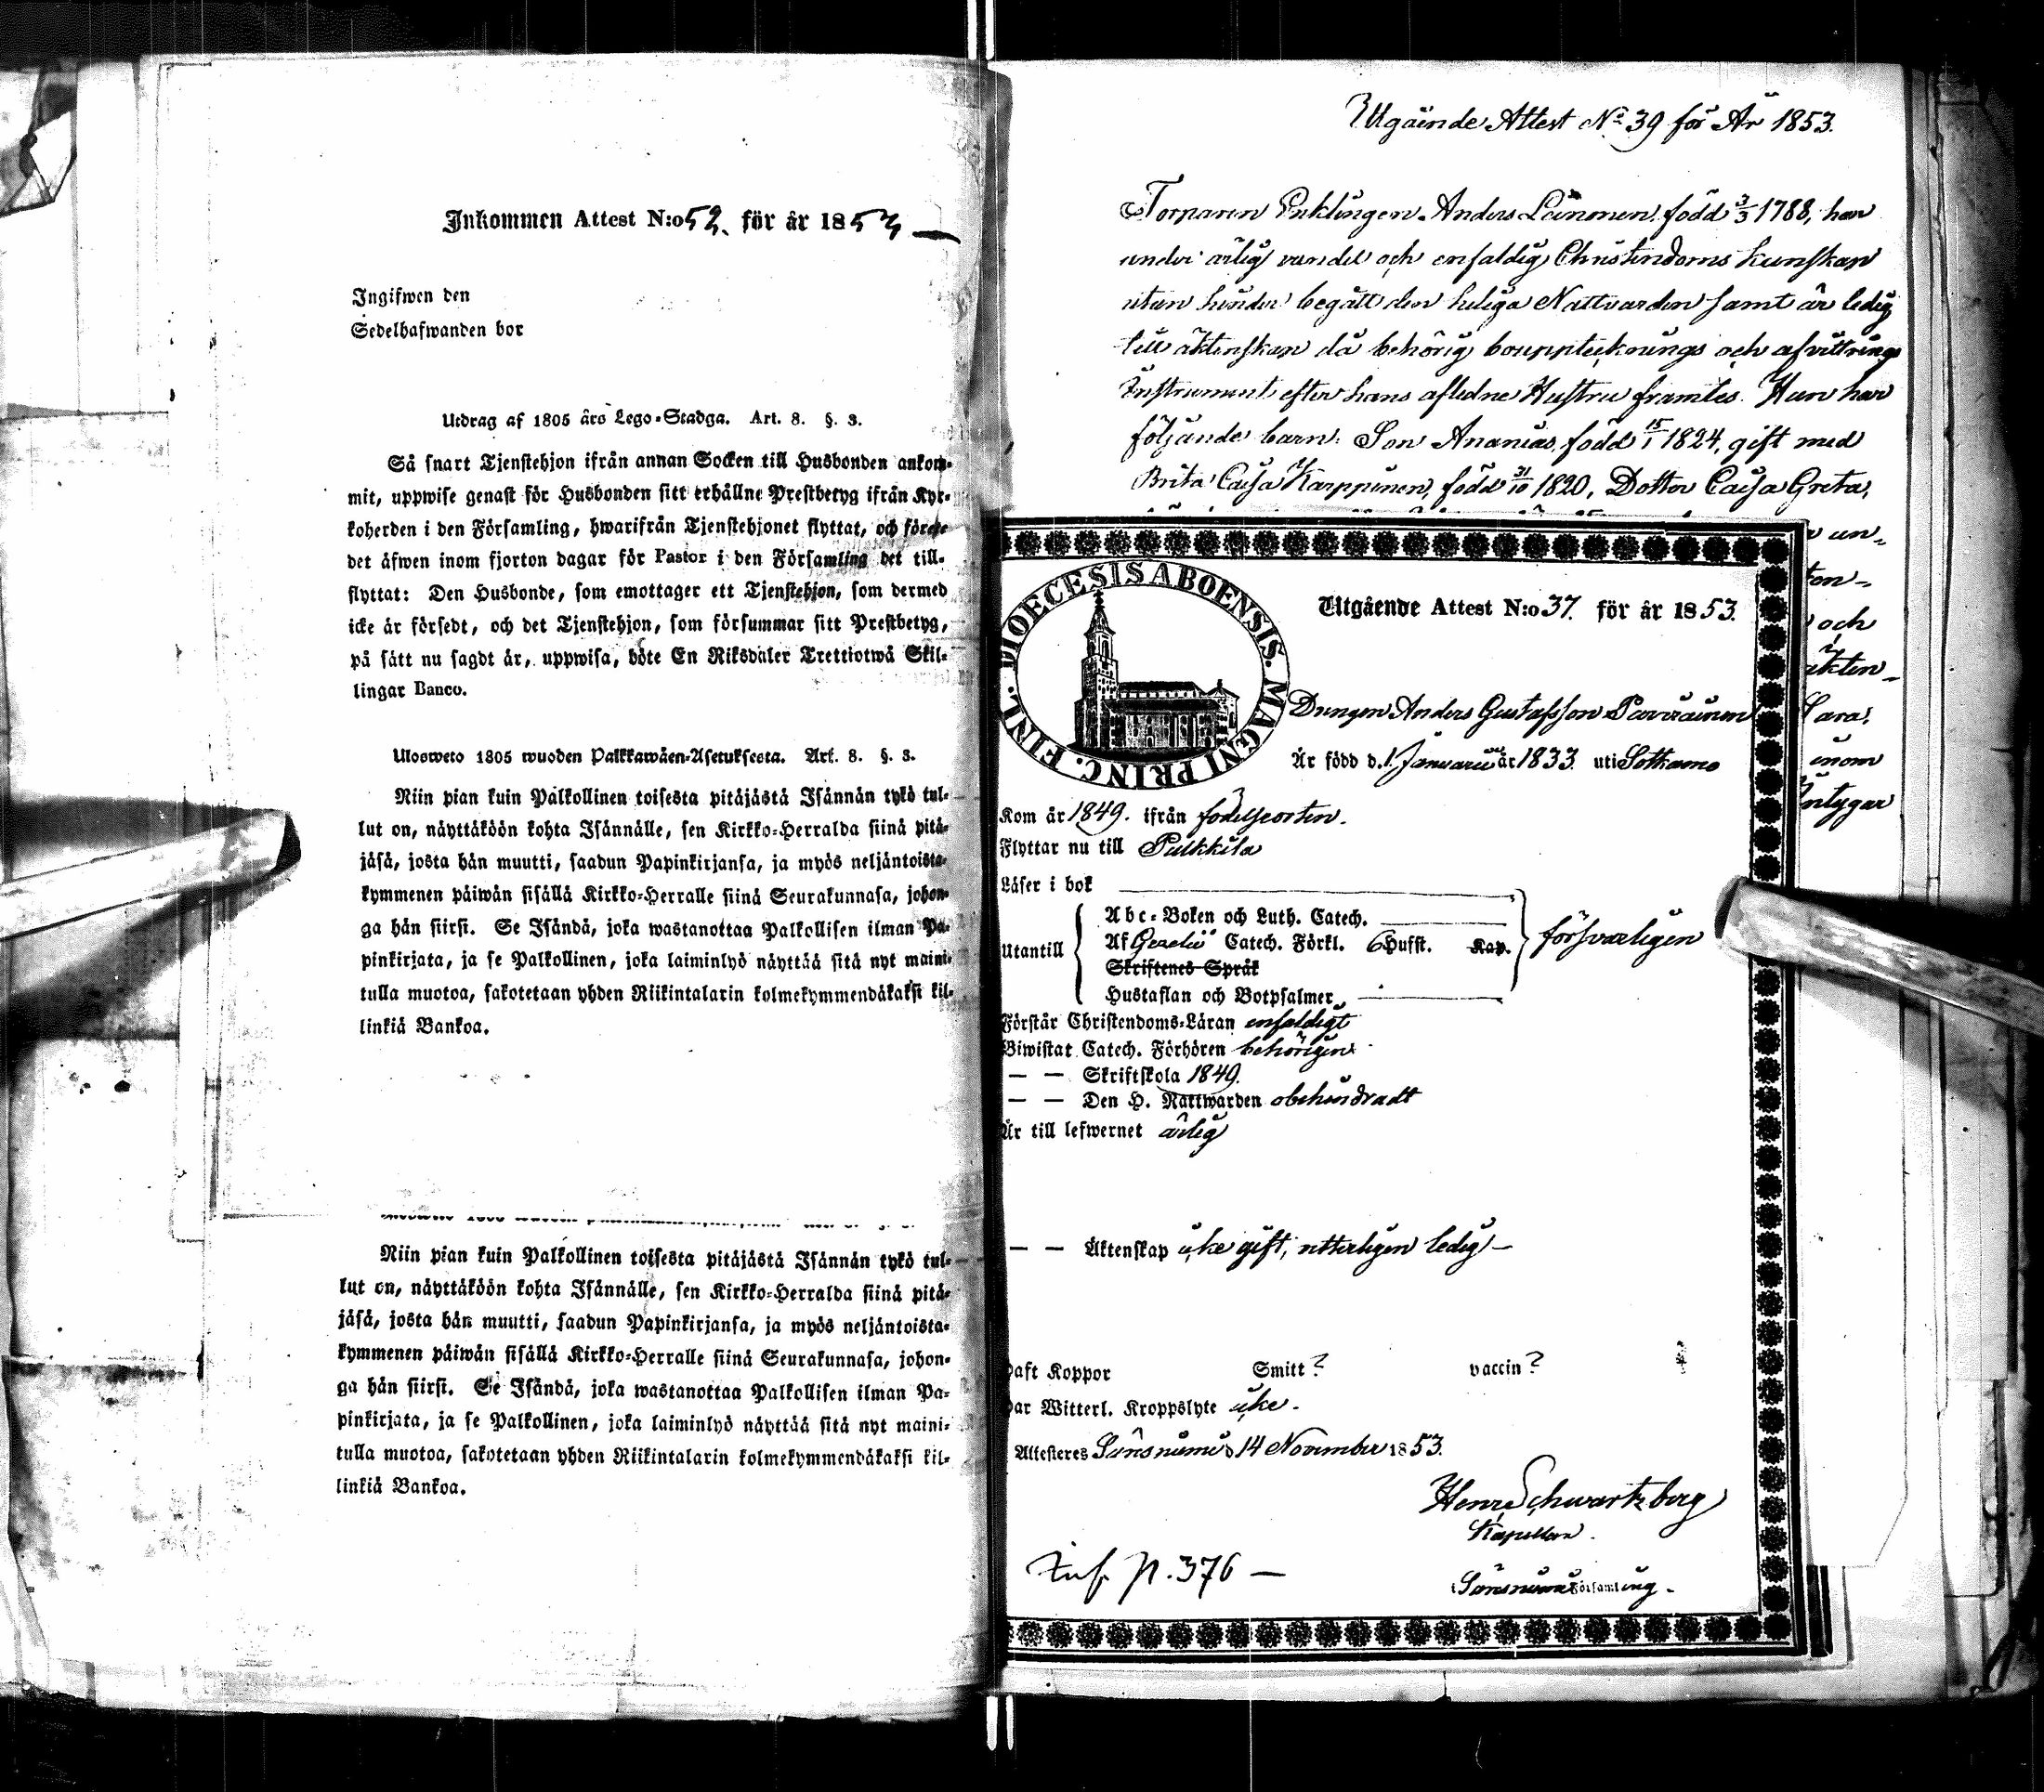 Inkommen Attest N:o 52. för år 1853
Ingifwen den
Sedelhafwanden bor
Utdrag af 1805 års Lego-Stadga. Art. 8. §. 3.
Så snart Tjenstehjon ifrån annan Socken till Husbonden ankom-
mit, uppwise genast för Husbonden sitt erhållne Prestbetyg ifrån Kyr-
koherden i den Församling, hwarifrån Tjenstehjonet flyttat, och förete
det äfwen inom fjorton dagar för Pastor i den Församling det till-
flyttat: Den Husbonde, som emottager ett Tjenstehjon, som dermed
icke är försedt, och det Tjenstehjon, som försummar sitt Prestbetyg,
på sätt nu sagdt är, uppwisa, böte En Riksdaler Trettiotwå Skil-
lingar Banco.
Ulosweto 1805 wuoden Palkkawäen-Asetuksesta. Art. 8. §. 3.
Niin pian kuin Palkollinen toisesta pitäjästä Isännän tykö tul-
lut on, näyttäköön kohta Isännälle, sen Kirkko-Herralda siinä pitä-
jäsä, josta hän muutti, saadun Papinkirjansa, ja myös neljäntoista-
kymmenen päiwän sisällä Kirkko-Herralle siinä Seurakunnasa, johon-
ga hän siirsi. Se Isändä, joka wastanottaa Palkollisen ilman Pa-
pinkirjata, ja se Palkollinen, joka laiminlyö näyttää sitä nyt maini-
tulla muotoa, sakotetaan yhden Riikintalarin kolmekymmendäkaksi kil-
linkiä Bankoa.
Niin pian kuin Palkollinen toisesta pitäjästä Isännän tykö tul-
lut on, näyttäköön kohta Isännälle, sen Kirkko-Herralda siinä pitä-
jäsä, josta hän muutti, saadun Papinkirjansa, ja myös neljäntoista-
kymmenen päiwän sisällä Kirkko-Herralle siinä Seurakunnasa, johon-
ga hän siirsi. Se Isändä, joka wastanottaa Palkollisen ilman Pa-
pinkirjata, ja se Palkollinen, joka laiminlyö näyttää sitä nyt maini-
tulla muotoa, sakotetaan yhden Riikintalarin kolmekymmendäkaksi kil-
linkiä Bankoa.
Utgående Attest No 39 för År 1853.
Torparen Enklingen Anders Leinonen, född 3/3 1788, har
under ärlig vandel och enfaldig Christendoms kunskap
utan hinder begått den heliga Nattvarden samt är ledig
till äktenskap då behörig bouppteknings och afvittrings
Instrument efter hans aflidne Hustru framtes. Han har
följande barn: Son Ananias, född 15/1 1824, gift med
Brita Caisa Karppinen, född 31/10 1820, Dotter Caisa Greta,
un-
och
äkten-
Sara,
inom
Intygar
DIOECESIS ABOENSIS. MAGNI PRINC. FINL.
Utgående Attest N:o 37. för år 1853.
Drengen Anders Gustafsson Parviainen
Är född d. 1 Januarii år 1833 uti Sotkamo
Kom år 1849. ifrån födelseorten.
Flyttar nu till Pulkkila
Läser i bok
Abc-Boken och Luth. Catech.
Utantill Af Gezelii Catech. Förkl. 6 Hufst. Kap. försvarligen
Skriftenes Språk
Hustaflan och Botpsalmer
Förstår Christendoms-Läran enfaldigt
Biwistat Catech. Förhören behörigen
— — Skriftskola 1849.
— — Den H. Nattwarden obehindradt
Är till lefwernet ärlig
— — Äktenskap icke gift, witterligen ledig —
haft Koppor Smitt? vaccin?
har Witterl. Kroppslyte icke.
Attesteres Säräisniemi d 14 November 1853.
Henr Schwartzberg
Kapellan.
i Säräisniemi Församling.
Inf. p. 376 —